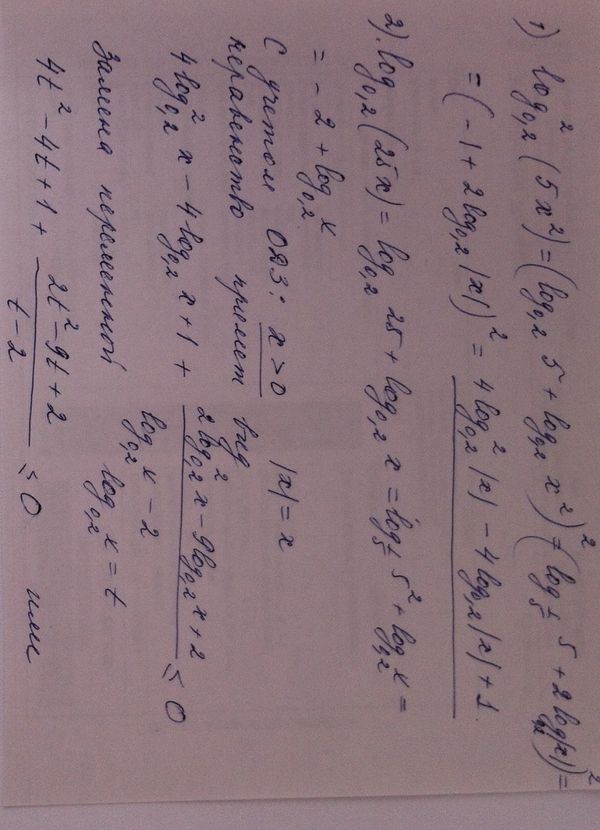 1) log²₀,₂ (5x²) = (log₀,₂ 5 + log₀,₂ x²)² = (log_{1/5} 5 + 2 log₀,₂ |x|)² =
= (-1 + 2 log₀,₂ |x|)² = 4 log²₀,₂ |x| - 4 log₀,₂ |x| + 1.
2). log₀,₂ (25x) = log₀,₂ 25 + log₀,₂ x = log_{1/5} 5² + log₀,₂ x =
= -2 + log₀,₂ x
С учетом ОДЗ: x > 0 |x| = x
неравенство примет вид
4 log²₀,₂ x - 4 log₀,₂ x + 1 + (2 log²₀,₂ x - 9 log₀,₂ x + 2) / (log₀,₂ x - 2) ≤ 0
Замена переменной log₀,₂ x = t
4t² - 4t + 1 + (2t² - 9t + 2) / (t - 2) ≤ 0 или